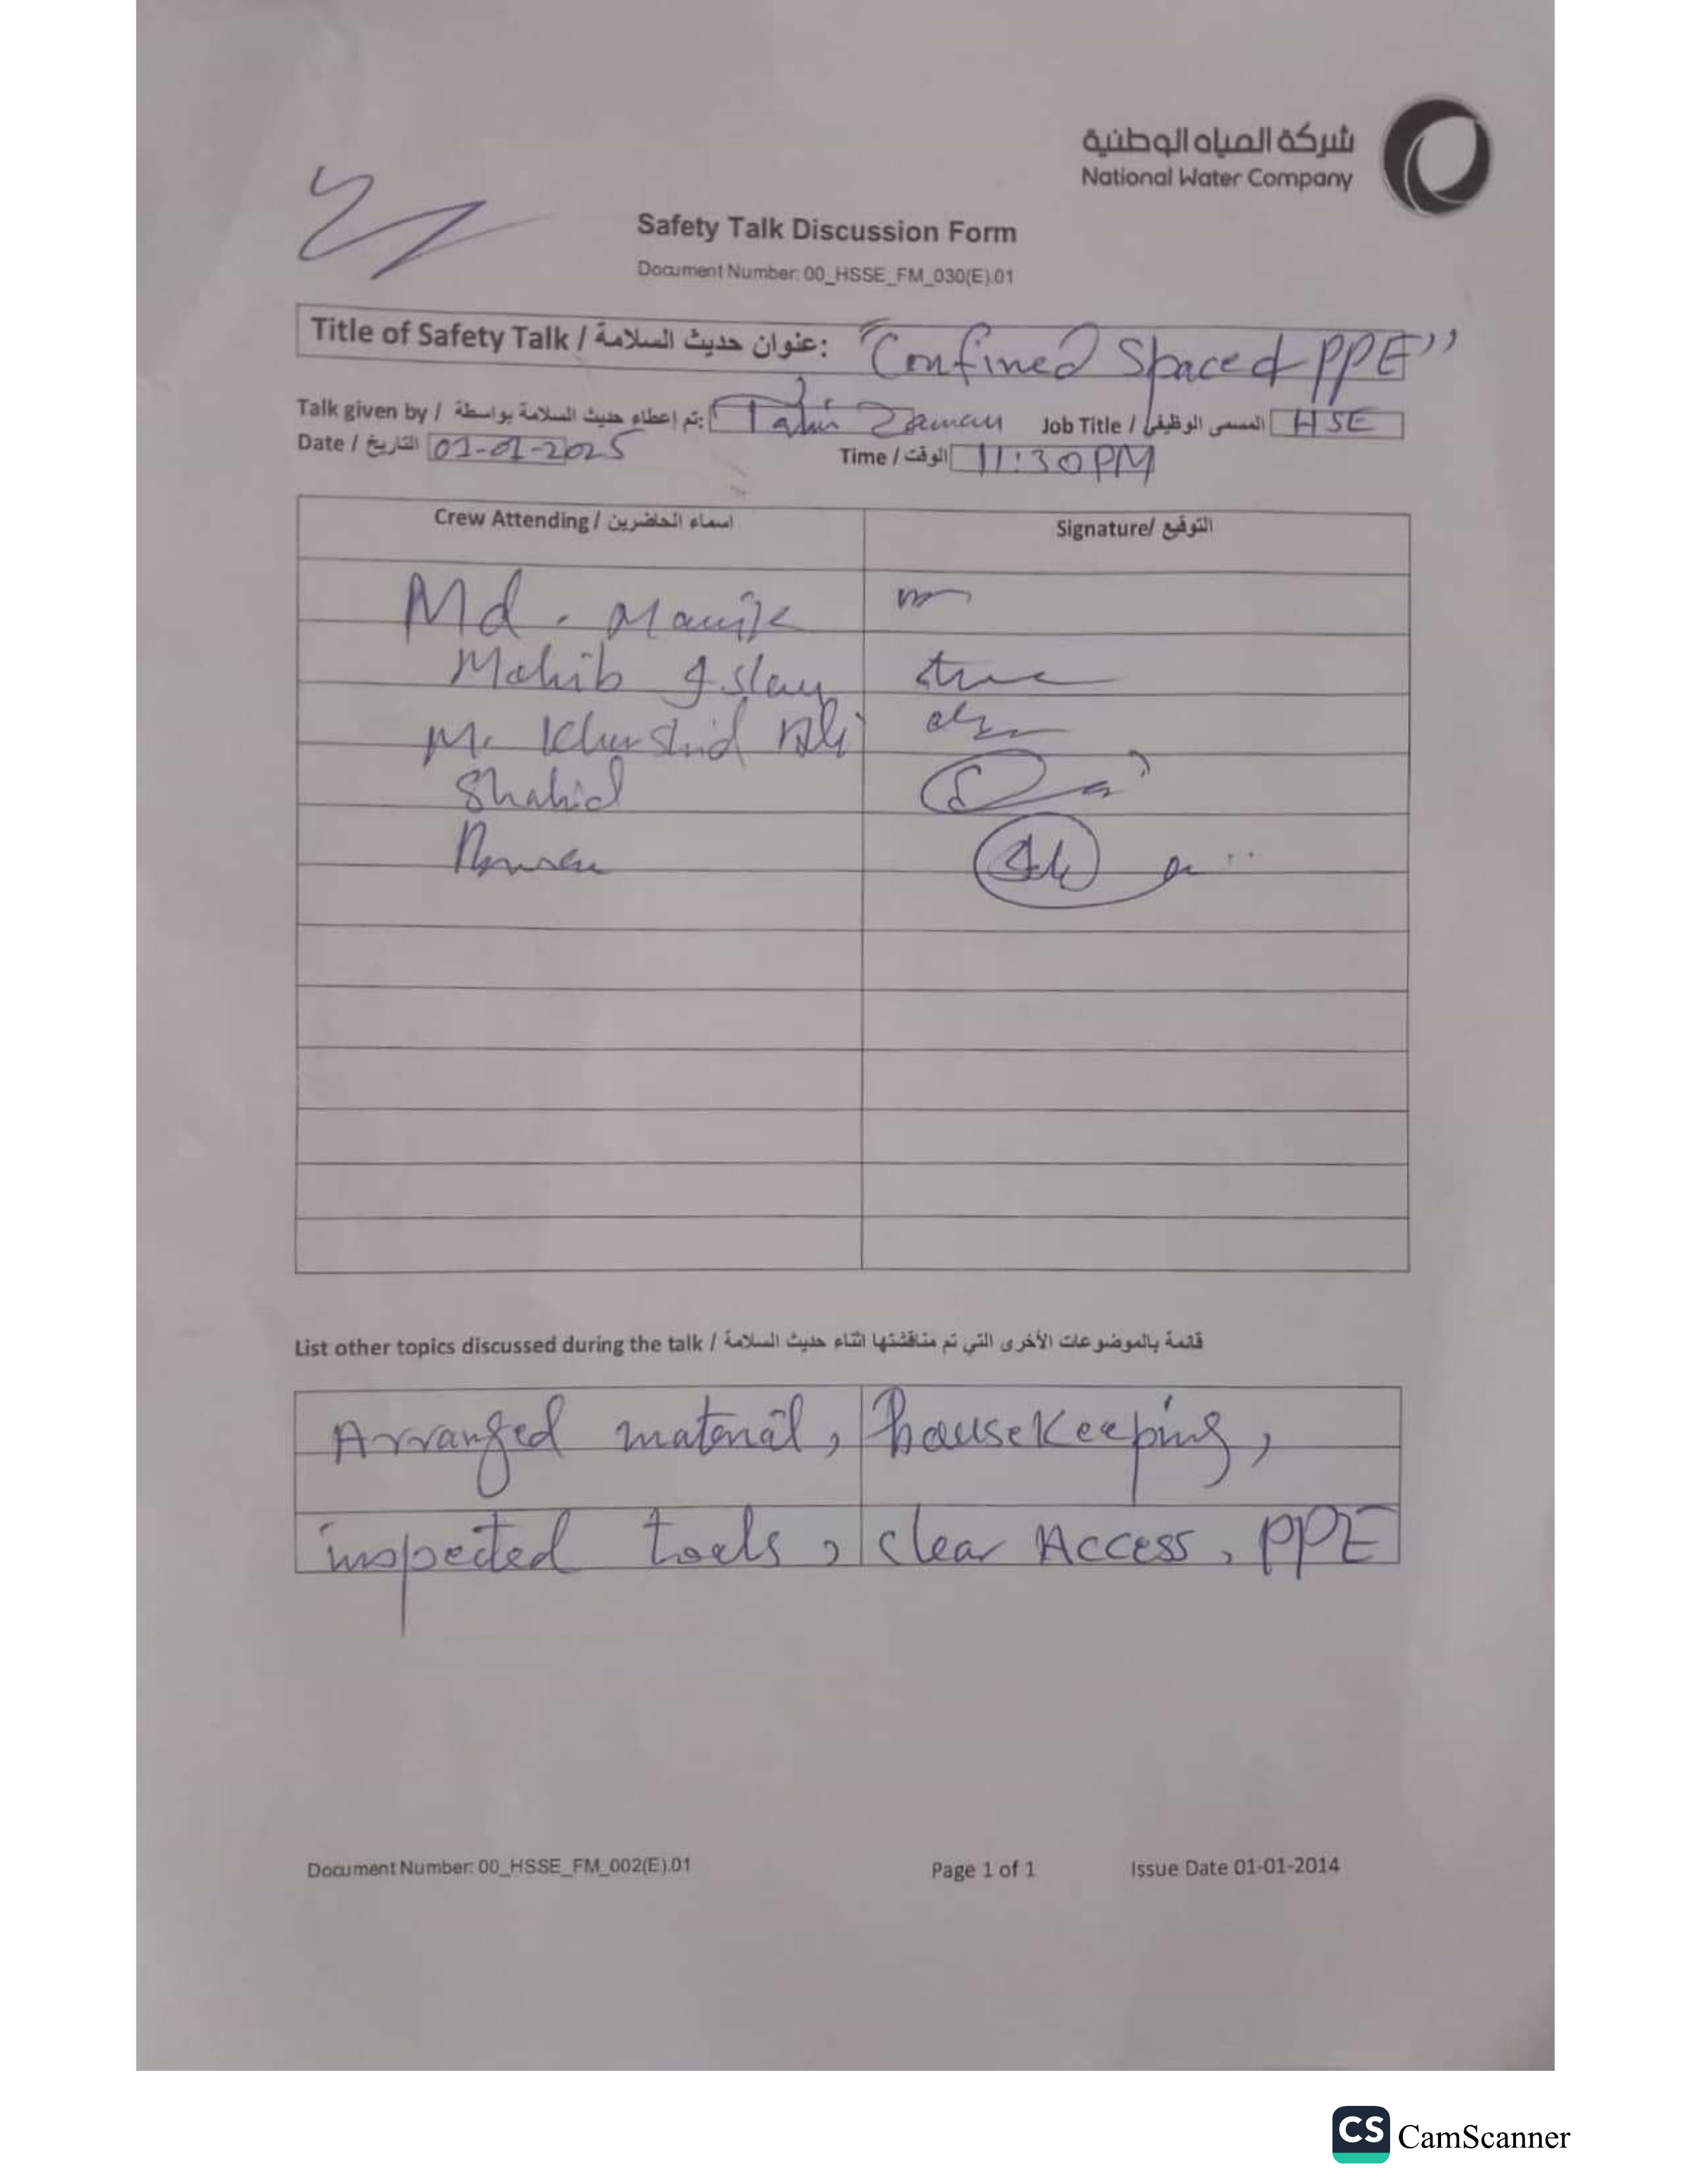 شركة المياه الوطنية
National Water Company
Safety Talk Discussion Form
Document Number: 00_HSSE_FM_030(E).01
Title of Safety Talk / عنوان حديث السلامة: "Confined Space & PPE"
Talk given by / تم إعطاء حديث السلامة بواسطة: Tahir Zaman Job Title / المسمى الوظيفي HSE
Date / التاريخ 01-01-2025 Time / الوقت 11:30PM
Crew Attending / اسماء الحاضرين Signature/ التوقيع
Md. Manik
Mohib Islam
M. Khurshid Ali
Shahid
List other topics discussed during the talk / قائمة بالموضوعات الأخرى التي تم مناقشتها اثناء حديث السلامة
Arranged material, housekeeping,
inspected tools, clear Access, PPE
Document Number: 00_HSSE_FM_002(E).01 Page 1 of 1 Issue Date 01-01-2014
CS CamScanner